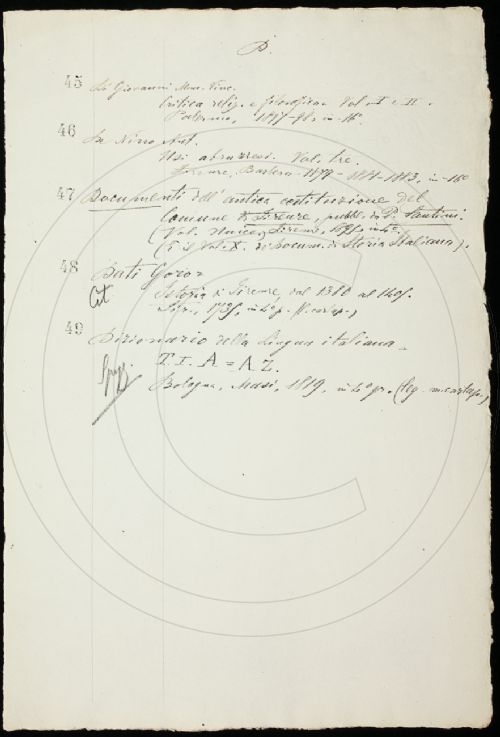 D.
45 Di Giovanni Mar. Vinc.
Critica relig. e filosofica. Vol. I e II.
Palermo, 1897-98, in-16°
46 De Nino Ant.
Usi abruzzesi. Vol. tre.
Firenze, Barbera 1879-1881-1883, in-16°
47 Documenti dell' antica costituzione del
Comune di Firenze, pubbl. da P. Santini.
(Vol. Unico, Firenze, in 4°
(È il Vol. X. di Docum. di Storia Italiana).
48 Dati Goro
Istoria di Firenze, dal 1380 al 1405.
in 4° p.
49 Dizionario della Lingua italiana
T. I. A = A Z.
Bologna, Masi, 1819, in 4° gr. (leg.